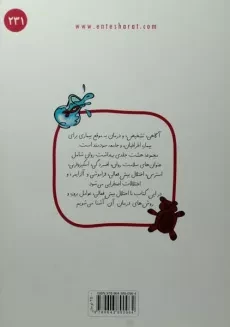 ۲۳۱
www.entesharat.com
آگاهی، تشخیص و درمان - موقع بیماری برای
بیمار، اطرافیان و جامعه سودمند است.
مجموعه هشت جلدی بهداشت روان شامل
عنوان‌های سلامت روان، افسردگی، اسکیزوفرنی،
استرس، اختلال بیش فعالی، فراموشی و آلزایمر و
اختلالات اضطرابی می‌شود.
در این کتاب، با اختلال بیش فعالی، عوامل بروز و
روش‌های درمان آن آشنا می‌شویم.